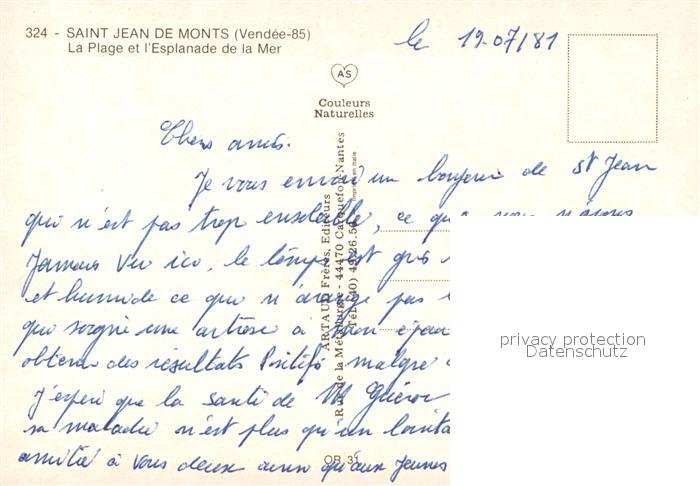 324 - SAINT JEAN DE MONTS (Vendée-85)
La Plage et l'Esplanade de la Mer
le 19-07/81
AS
Couleurs
Naturelles
Chers amis.
Je vous envoi un bonjour de St Jean
qui n'est pas trop ensoleillé, ce que nous n'avons
Jamais Vu ici, le temps est gris
et humide ce qui n'arrange pas
qui soigne une artrose à l'épau
obtenu des résultats Positifs malgré
J'espère que la santé de Mr
sa maladie n'est plus qu'un lointa
amitié à Vous deux ainsi qu'aux Jeunes
ARTAUD Frères, Editeurs
Rue de la Métallurgie - 44470 Carquefou-Nantes
Tél. (40) 49.26.50
Imprimé en Italie
OR 31
privacy protection
Datenschutz